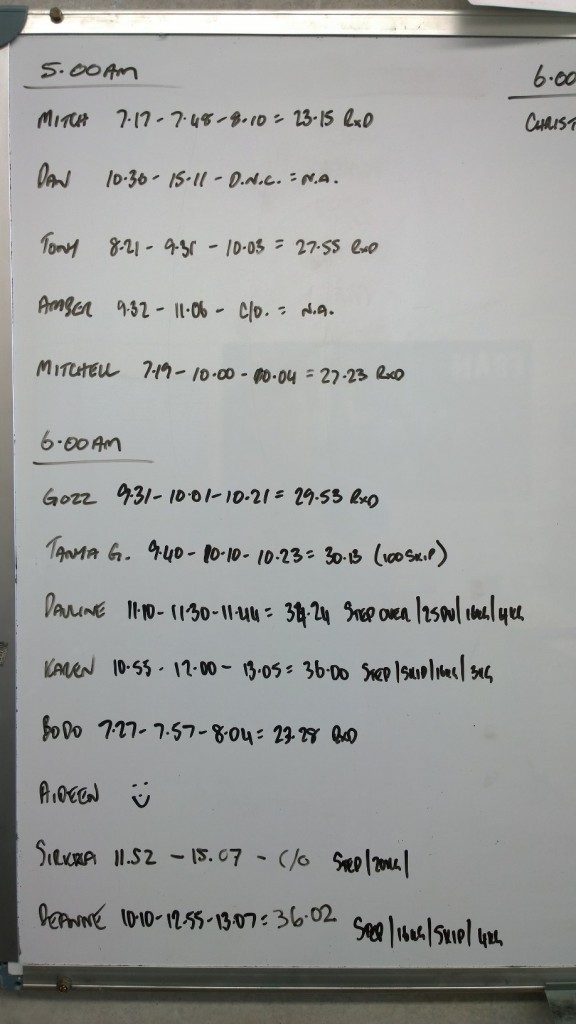 5.00AM
MITCH 7.17 - 7.48 - 8.10 = 23.15 RxD
DAN 10.30 - 15.11 - D.N.C. = N.A.
TONY 8.21 - 9.31 - 10.03 = 27.55 RxD
AMBER 9.32 - 11.06 - C/O. = N.A.
MITCHELL 7.19 - 10.00 - 10.04 = 27.23 RxD
6.00AM
GOZZ 9.31 - 10.01 - 10.21 = 29.53 RxD
TANYA G. 9.40 - 10.10 - 10.23 = 30.13 (100 SKIP)
PAULINE 11.10 - 11.30 - 11.44 = 34.24 STEP OVER / 25DU / 16KG / 4KG
KAREN 10.55 - 12.00 - 13.05 = 36.00 STEP / SKIP / 16KG / 3KG
BODO 7.27 - 7.57 - 8.04 = 23.28 RxD
AIDEEN
SIRKKA 11.52 - 15.07 - C/O STEP / 20KG /
DEANNE 10.10 - 12.55 - 13.07 = 36.02 STEP / 16KG / SKIP / 4KG
6.00
CHRIST